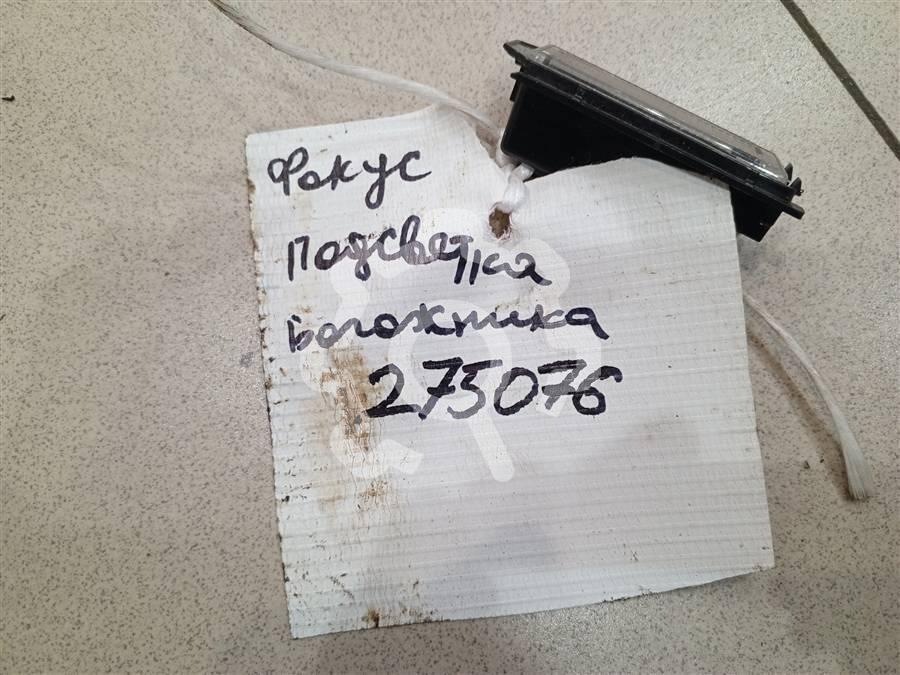 Фокус
Подсветка
Богожника
275076